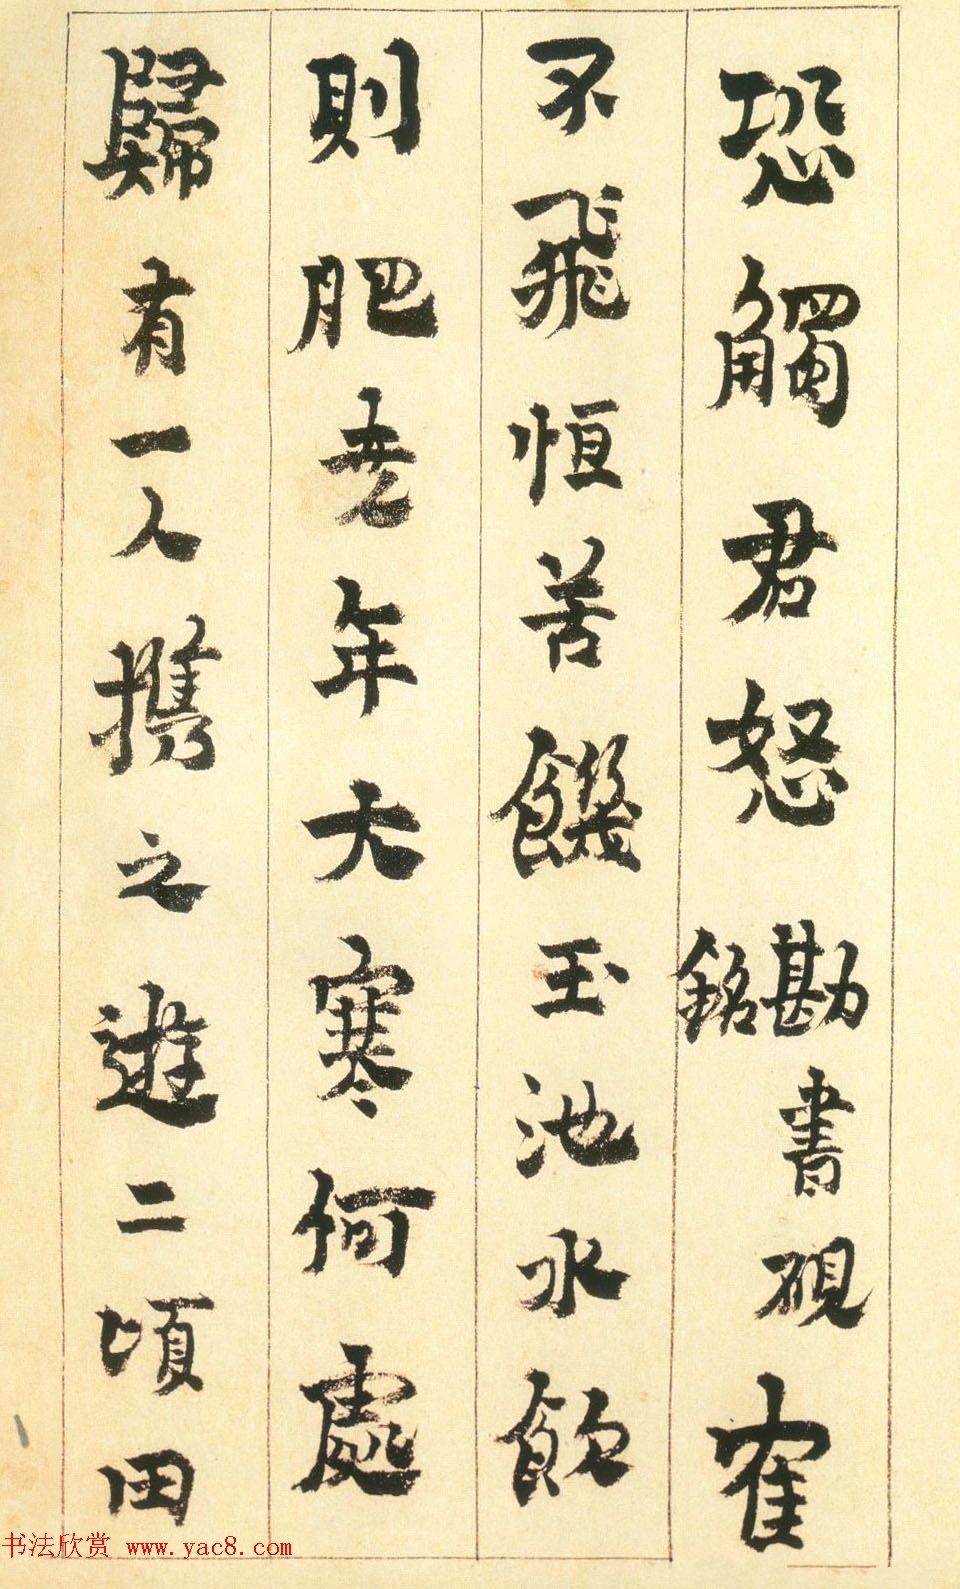 恐觸君怒 勘書硯銘 隺
不飛恒苦饑玉池水飲
則肥年大寒何處
歸有一人携之遊二頃田
书法欣赏 www.yac8.com